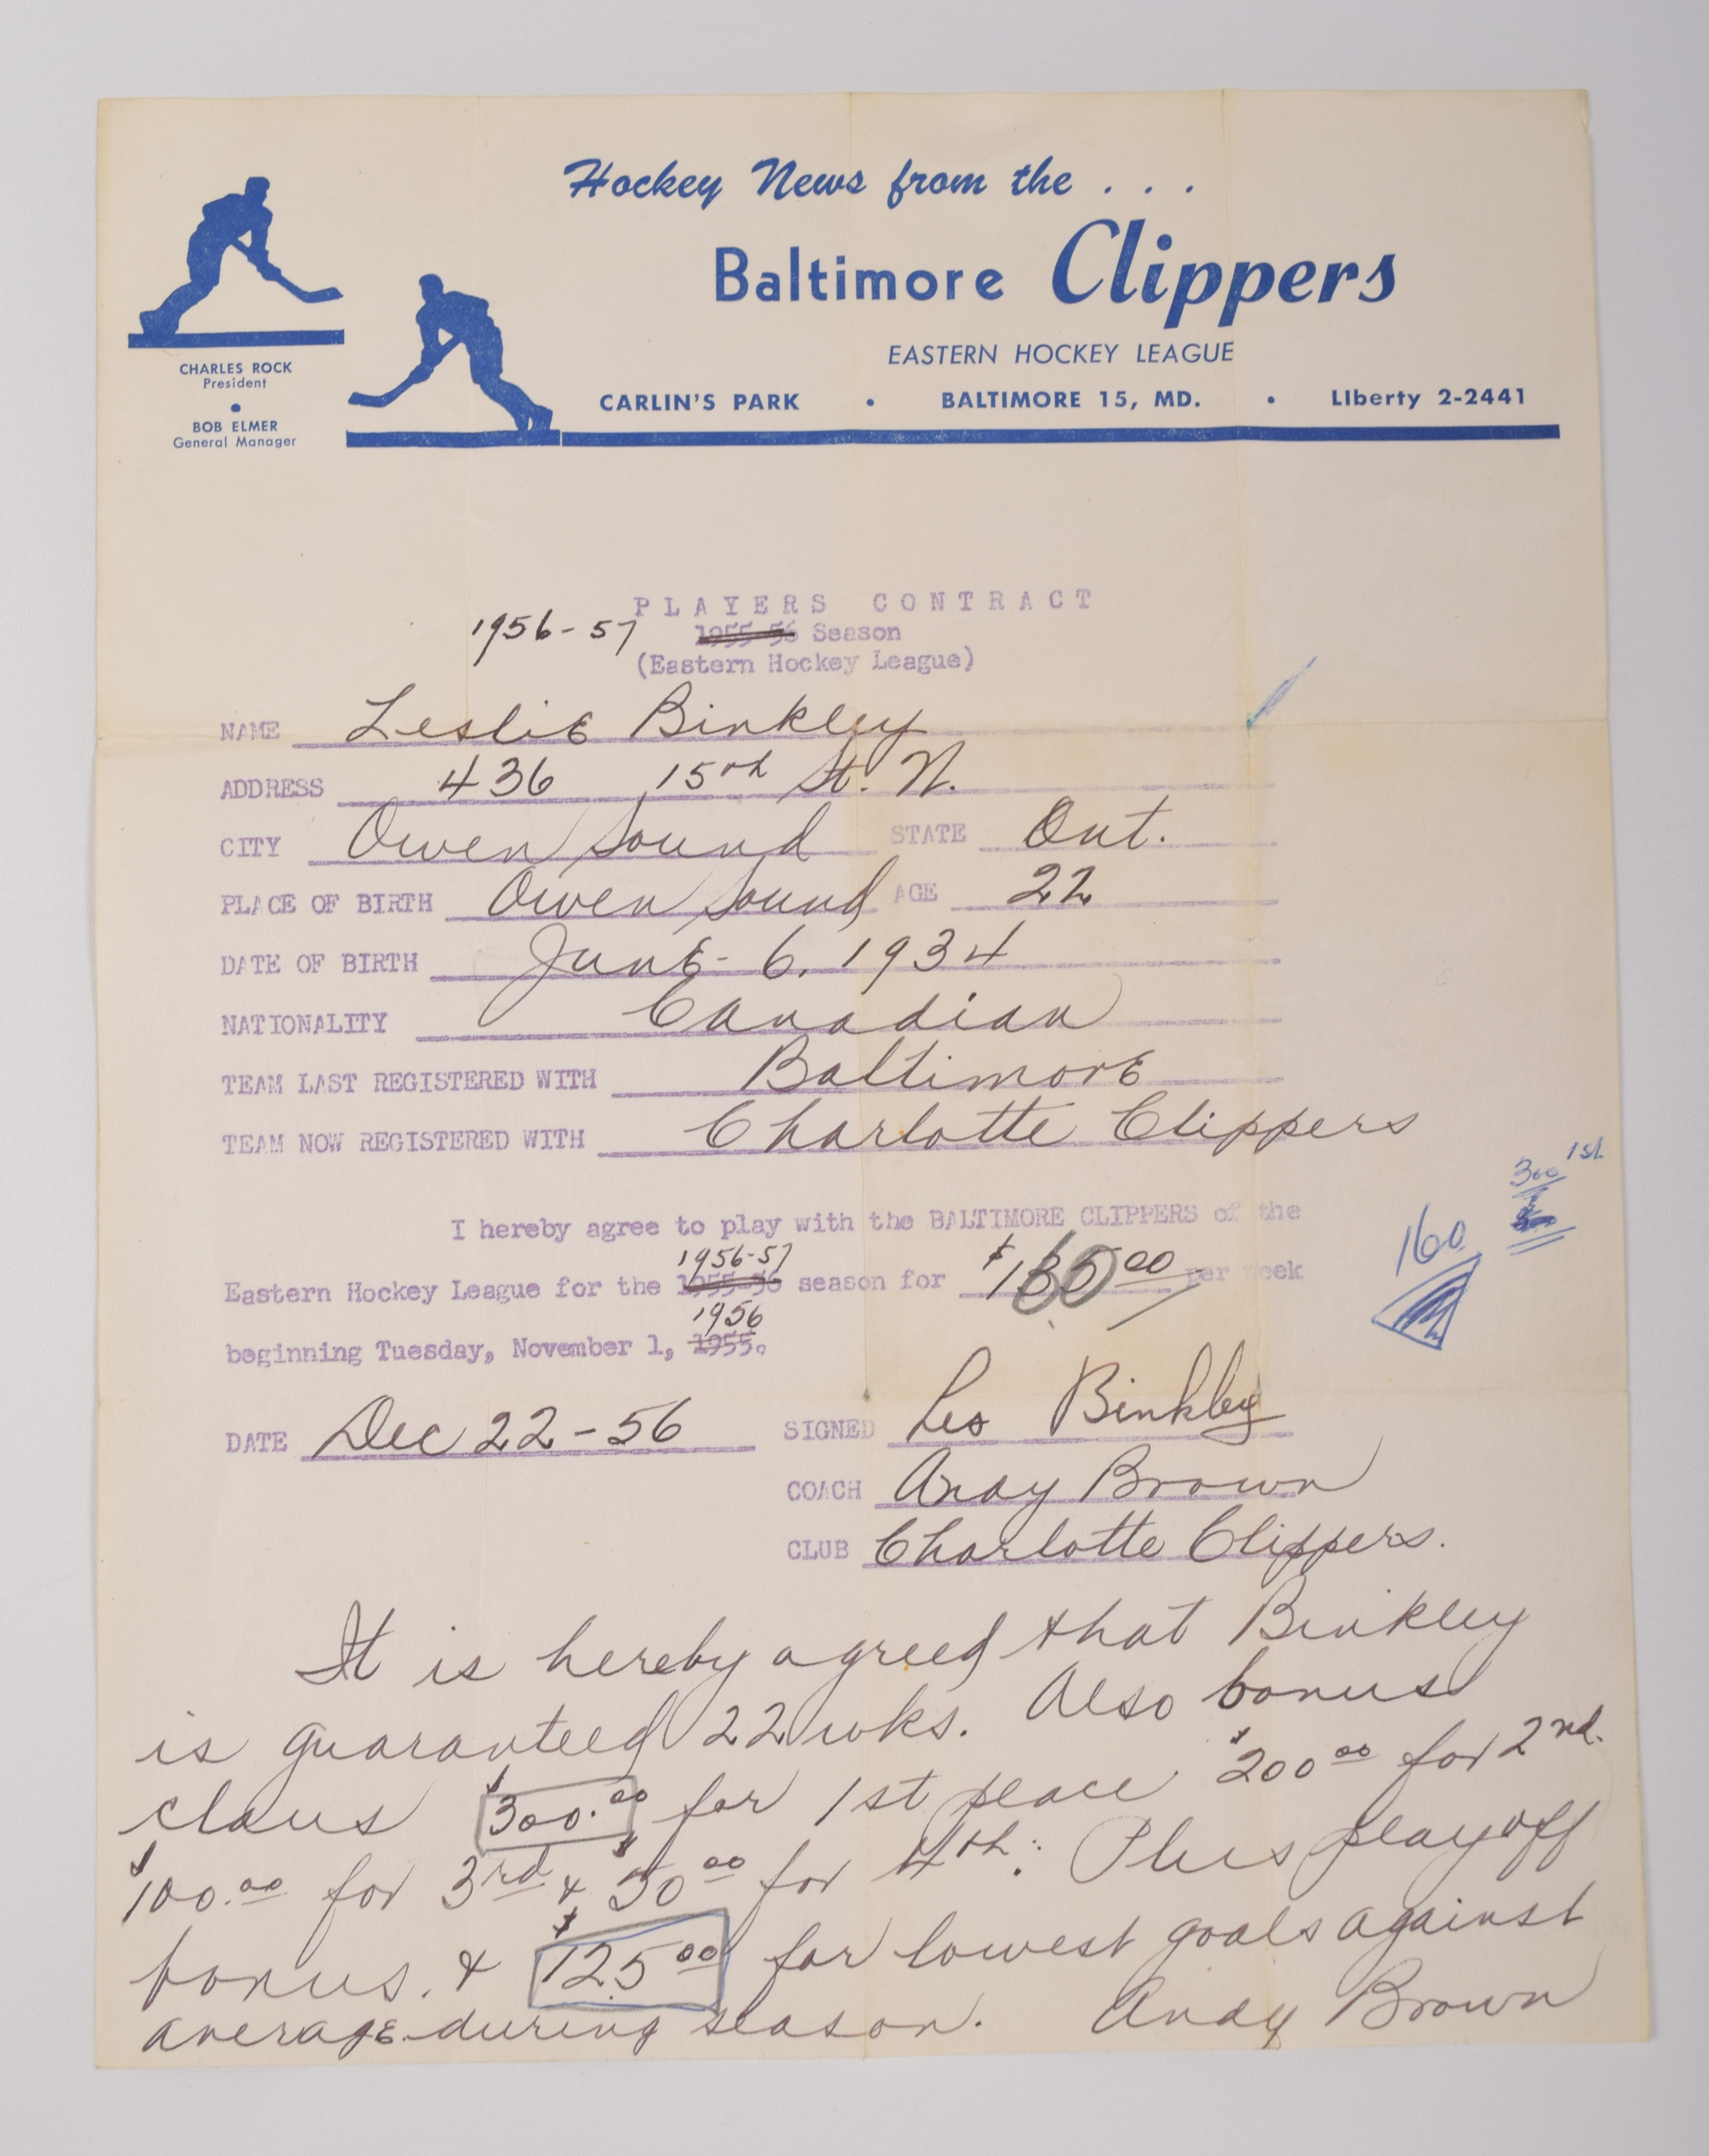 Hockey News from the . . .
Baltimore Clippers
EASTERN HOCKEY LEAGUE
CARLIN'S PARK • BALTIMORE 15, MD. • LIberty 2-2441
CHARLES ROCK
President
•
BOB ELMER
General Manager
PLAYERS CONTRACT
1956-57 1955-56 Season
(Eastern Hockey League)
NAME Leslie Binkley
ADDRESS 436 15th St. N.
CITY Owen Sound STATE Ont.
PLACE OF BIRTH Owen Sound AGE 22
DATE OF BIRTH June - 6. 1934
NATIONALITY Canadian
TEAM LAST REGISTERED WITH Baltimore
TEAM NOW REGISTERED WITH Charlotte Clippers
300 1st
160
I hereby agree to play with the BALTIMORE CLIPPERS of the
1956-57
Eastern Hockey League for the 1955-56 season for per week
1956
beginning Tuesday, November 1, 1955.
DATE Dec 22-56 SIGNED Les Binkley
COACH Andy Brown
CLUB Charlotte Clippers.
It is hereby agreed that Binkley
is guaranteed 22 wks. Also bonus
claus $300.00 for 1st place $200.00 for 2nd.
$100.00 for 3rd & $50.00 for 4th. Plus playoff
bonus. & $125.00 for lowest goals against
average during season. Andy Brown